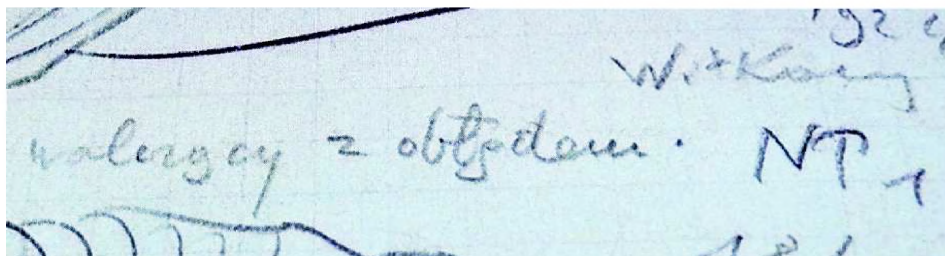 192
Witkacy
walczący z obłędem. NΠ1